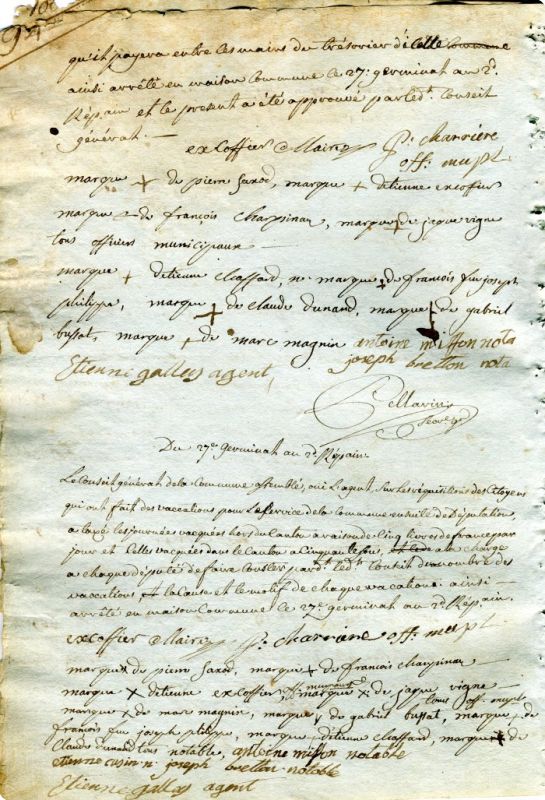 qu'il payera entre les mains du trésorier de cette Commune
ainsi arrêté en maison Commune le 27e. germinal an 2d.
Répain et le present a été approuvé par led. Conseil
général.
excoffier Maire P. charriere
off. mupl.
marque + de pierre Saxod, marque + detienne excoffier
marque + de françois Charpinau, marque + de jaque vigne
tous officiers municipaux
marque + detienne Chaffard, ne marque + de francois feu joseph
philippe, marque + de claude Dunand, marque + de gabriel
bussat, marque + de marc magnin antoine misson nota
Etienne gallay agent, joseph bretton nota
Pellarin
Secre.
Du 27e germinal an 2d. Répain.
Le Conseil général de la Commune assemblé, oui L'agent, Sur les réquisitions des Citoyens
qui ont fait des vacations pour Le Service de la Commune ensuite de Députation
a taxé les journées vacquées hors du Canton a raison de Cinq livres de france par
jour et Celles vacquées dans le Canton a Cinquante sous, a la charge
a chaque député de faire Conster pard. led. Conseil du nombre des
vacations et la Cause et le motif de chaque vacations. ainsi
arrêté en maison Commune le 27e germinal an 2d. Rép.ain.
excoffier Maire P. charriere off. mupl.
marque + de pierre Saxod, marque + de francois Charpinau
marque + detienne excoffier, marque + de jaque vigne
tous off. mupx
marque + de marc magnin, marque + de gabriel bussat, marque + de
francois feu joseph philippe, marque + detienne Chaffard, marque + de
Claude Dunand tous notable, antoine misson notable
etienne cusin n. joseph bretton notable
Etienne gallay agent